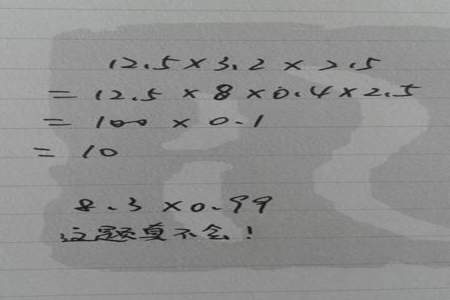 12.5×3.2×2.5
=12.5×8×0.4×2.5
=100×0.1
=10
8.3×0.99
这题真不会!